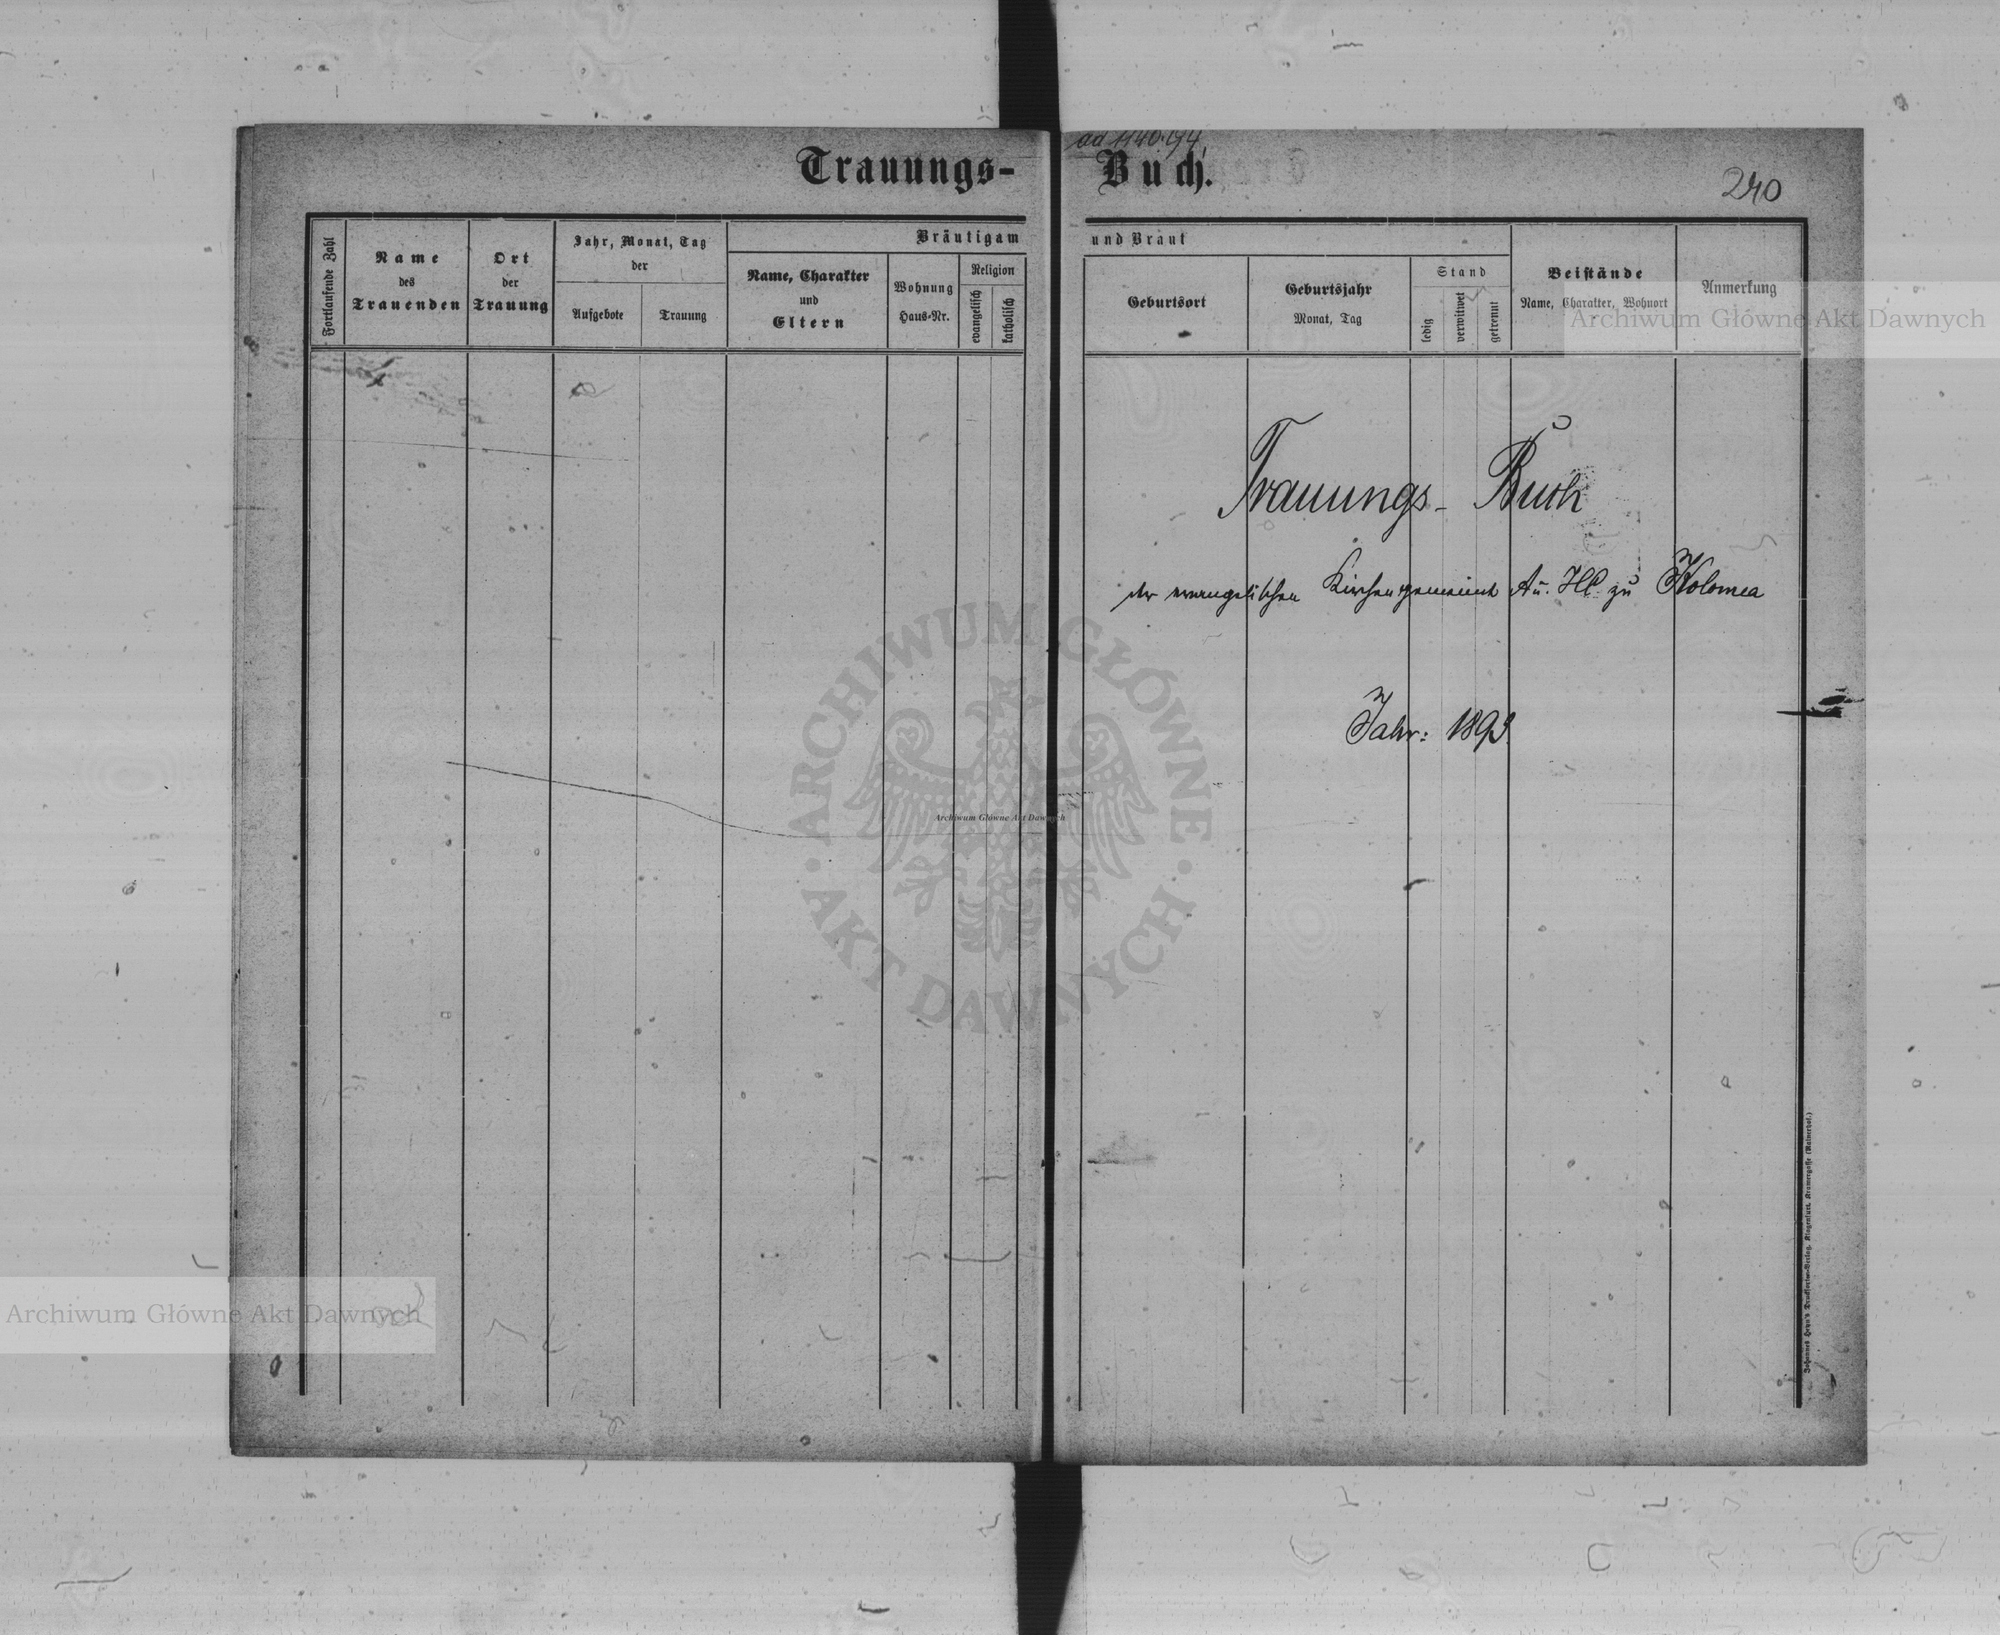 ad 1140/94
Trauungs-Buch.
240
Fortlaufende Zahl
Name
des
Trauenden
Ort
der
Trauung
Jahr, Monat, Tag
der
Aufgebote
Trauung
Bräutigam
und Braut
Name, Charakter
und
Eltern
Wohnung
Haus-Nr.
Religion
evangelisch
katholisch
Geburtsort
Geburtsjahr
Monat, Tag
Stand
ledig
verwitwet
getrennt
Beistände
Name, Charakter, Wohnort
Anmerkung
Archiwum Główne Akt Dawnych
Trauungs- Buch
der evangelischen Kirchengemeinde A u. HC. zu Kolomea
Jahr: 1893.
ARCHIWUM GŁÓWNE
Archiwum Główne Akt Dawnych
AKT DAWNYCH
Archiwum Główne Akt Dawnych